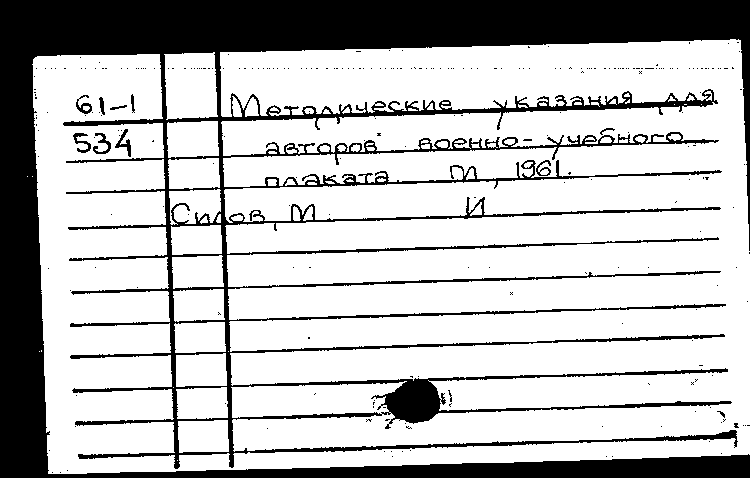 61-1 Методические указания для
534 авторов военно-учебного
плаката М, 1961.
Силов, М. И